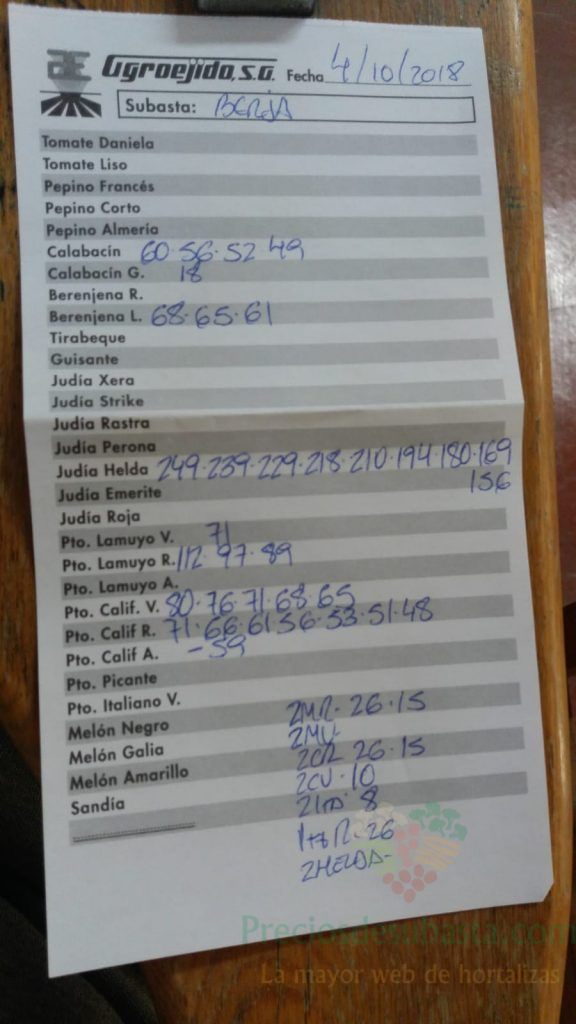 Agroejido, s.a. Fecha 4/10/2018
Subasta: BERJA
Tomate Daniela
Tomate Liso
Pepino Francés
Pepino Corto
Pepino Almería
Calabacín 60·56·52·49
Calabacín G. 18
Berenjena R.
Berenjena L. 68·65·61
Tirabeque
Guisante
Judía Xera
Judía Strike
Judía Rastra
Judía Perona
Judía Helda 249·239·229·218·210·194·180·169
Judía Emerite 156
Judía Roja
Pto. Lamuyo V. 71
Pto. Lamuyo R. 112·97·89
Pto. Lamuyo A.
Pto. Calif. V. 80·76·71·68·65
Pto. Calif R. 71·66·61 56·53·51·48
Pto. Calif A. -59
Pto. Picante
Pto. Italiano V.
Melón Negro 2MR·26·15
Melón Galia 2MV
Melón Amarillo 2CR 26·15
Sandía 2CV·10
8
26
2HELDA-
Preciosdesubasta.com
La mayor web de hortalizas